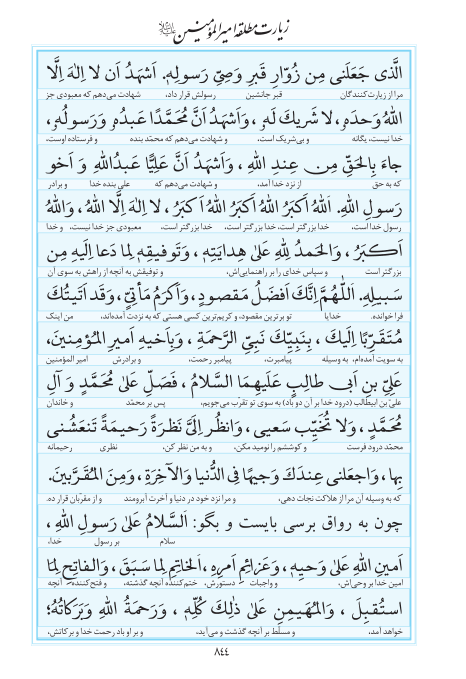 زیارت مطلقه امیرالمؤمنین علیه‌السلام
الَّذی جَعَلَنی مِن زُوّارِ قَبرِ وَصِیِّ رَسولِهِ. اَشهَدُ اَن لا اِلٰهَ اِلَّا
مرا از زیارت‌کنندگان قبر جانشین رسولش قرار داد، شهادت می‌دهم که معبودی جز
اللّٰهُ وَحدَهٗ، لا شَریكَ لَهٗ، وَاَشهَدُ اَنَّ مُحَمَّدًا عَبدُهٗ وَرَسولُهٗ،
خدا نیست، یگانه و بی‌شریک است، و شهادت می‌دهم که محمّد بنده و فرستاده اوست،
جاءَ بِالحَقِّ مِن عِندِ اللّٰهِ، وَاَشهَدُ اَنَّ عَلِیًّا عَبدُاللّٰهِ وَ اَخو
که به حق از نزد خدا آمد، و شهادت می‌دهم که علی بنده خدا و برادر
رَسولِ اللّٰهِ. اَللّٰهُ اَکبَرُ اَللّٰهُ اَکبَرُ اَللّٰهُ اَکبَرُ، لا اِلٰهَ اِلَّا اللّٰهُ، وَاللّٰهُ
رسول خدا است، خدا بزرگتر است، خدا بزرگتر است، خدا بزرگتر است، معبودی جز خدا نیست، و خدا
اَکبَرُ، وَالحَمدُ لِلّٰهِ عَلیٰ هِدایَتِهٖ، وَتَوفیقِهٖ لِما دَعا اِلَیهِ مِن
بزرگتر است و سپاس خدای را بر راهنمایی‌اش، و توفیقش به آنچه از راهش به سوی آن
سَبیلِهٖ. اَللّٰهُمَّ اِنَّكَ اَفضَلُ مَقصودٍ، وَاَکرَمُ مَأتِیٍّ، وَقَد اَتَیتُكَ
فرا خوانده. خدایا تو برترین مقصود، و کریم‌ترین کسی هستی که به نزدت آمده‌اند، من اینک
مُتَقَرِّبًا اِلَیكَ، بِنَبِیِّكَ نَبِیِّ الرَّحمَةِ، وَبِاَخیهِ اَمیرِ المُؤمِنینَ،
به سویت آمده‌ام، به وسیله پیامبرت، پیامبر رحمت، و برادرش امیر المؤمنین
عَلِیِّ بنِ اَبی طالِبٍ عَلَیهِمَا السَّلامُ، فَصَلِّ عَلیٰ مُحَمَّدٍ وَ آلِ
علیّ بن ابیطالب (درود خدا بر آن دو باد) به سوی تو تقرب می‌جویم، پس بر محمّد و خاندان
مُحَمَّدٍ، وَلا تُخَیِّب سَعیی، وَانظُر اِلَیَّ نَظرَةً رَحیمَةً تَنعَشُنی
محمّد درود فرست و کوششم را نومید مکن، و به من نظر کن، نظری رحیمانه
بِها، وَاجعَلنی عِندَكَ وَجیهًا فِی الدُّنیا وَالآخِرَةِ، وَمِنَ المُقَرَّبینَ.
که به وسیله آن مرا از هلاکت نجات دهی، و مرا نزد خود در دنیا و آخرت آبرومند و از مقرّبان قرار ده.
چون به رواق برسی بایست و بگو: اَلسَّلامُ عَلیٰ رَسولِ اللّٰهِ،
سلام بر رسول خدا،
اَمینِ اللّٰهِ عَلیٰ وَحیِهٖ، وَعَزائِمِ اَمرِهٖ، اَلخاتِمِ لِما سَبَقَ، وَالفاتِحِ لِمَا
امین خدا بر وحی‌اش، و واجبات دستورش، ختم‌کننده آنچه گذشته، و فتح‌کننده آنچه
استُقبِلَ، وَالمُهَیمِنِ عَلیٰ ذٰلِكَ کُلِّهٖ، وَرَحمَةُ اللّٰهِ وَبَرَکاتُهٗ؛
خواهد آمد، و مسلّط بر آنچه گذشت و می‌آید، و بر او باد رحمت خدا و برکاتش،
۸۴۴